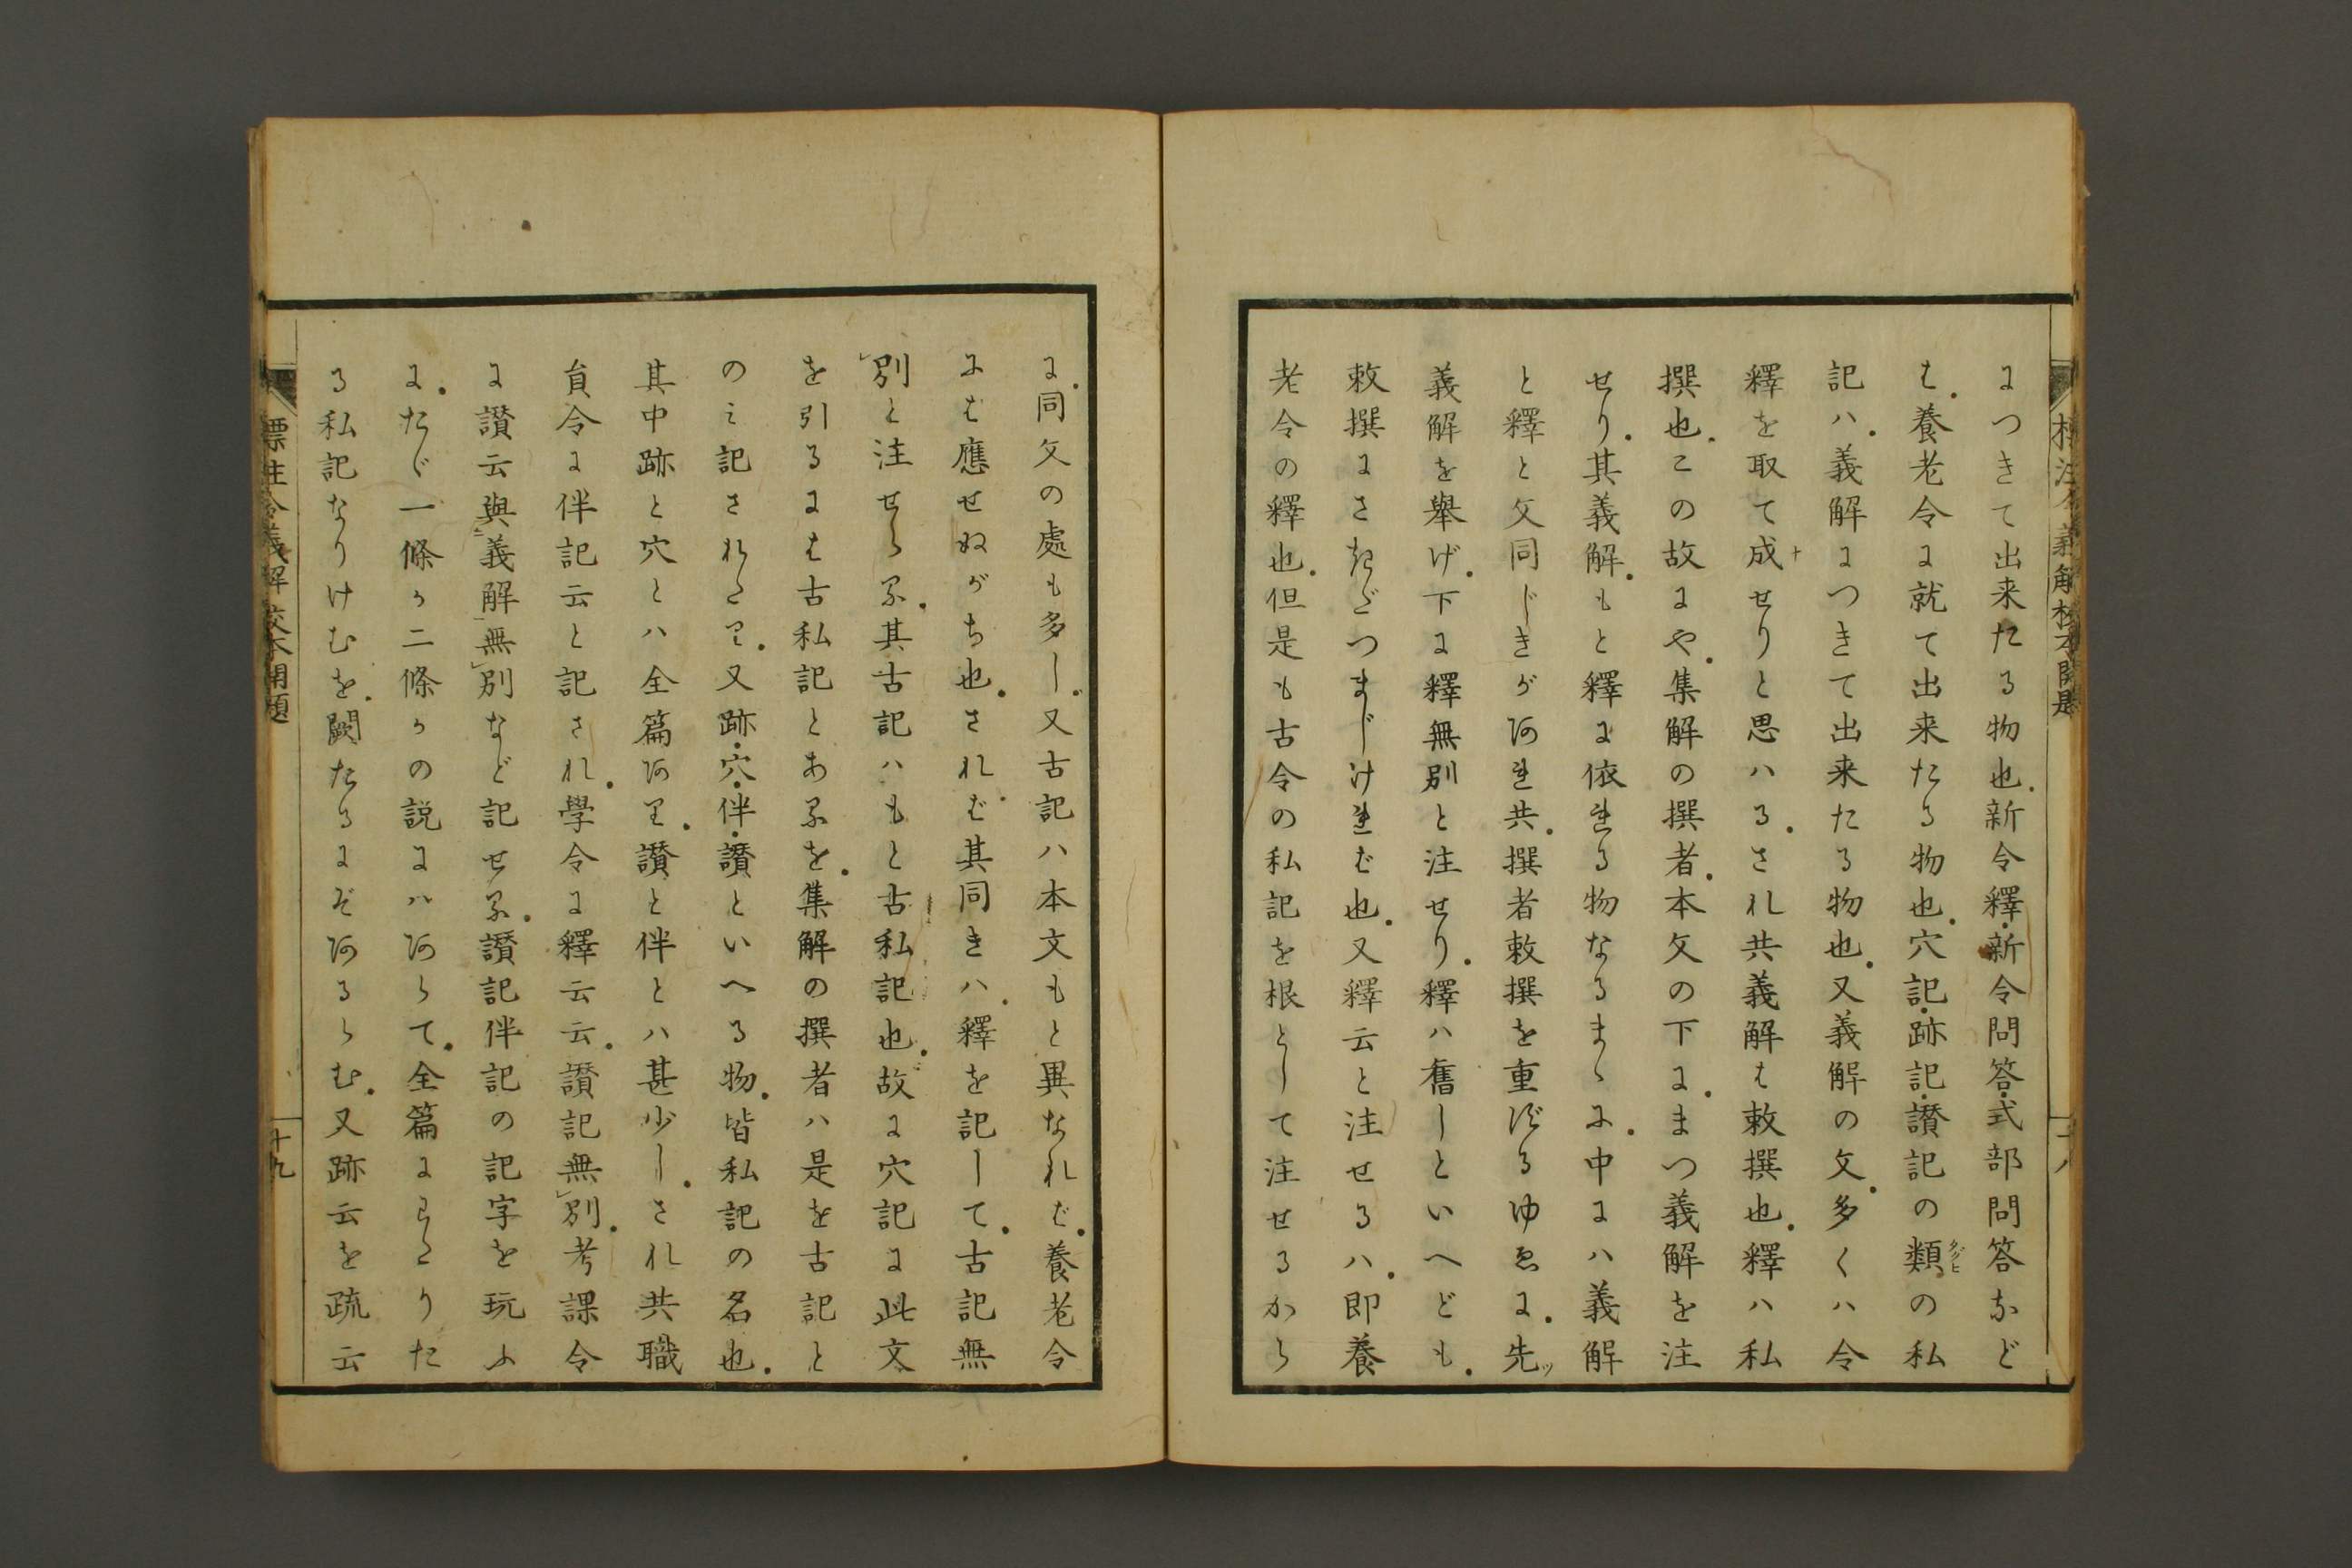 標注令義解校本開題
十八
につきて出来たる物也.新令釋.新令問答.式部問答など
は.養老令に就て出来たる物也.穴記.跡記.讃記の類の私
記ハ.義解につきて出来たる物也.又義解の文.多くハ令
釋を取て成せりと思ハる.され共義解は敕撰也.釋ハ私
撰也.この故にや.集解の撰者.本文の下に.まつ義解を注
せり.其義解.もと釋に依れる物なるまゝに.中にハ義解
と釋と文同じきがあれ共.撰者敕撰を重ずるゆゑに.先ッ
義解を舉げ.下に釋無別と注せり.釋ハ舊しといへども.
敕撰にさきだつまじければ也.又釋云と注せるハ.即養
老令の釋也.但是も古令の私記を根として注せるから
に.同文の處も多し.又古記ハ本文もと異なれば.養老令
には應せぬがち也.されば其同きハ.釋を記して.古記無
別と注せらる.其古記ハもと古私記也.故に穴記に此文
を引るには古私記とあるを.集解の撰者ハ是を古記と
のミ記されたり.又跡.穴.伴.讃といへる物.皆私記の名也.
其中跡と穴とハ全篇あり.讃と伴とハ甚少し.され共職
員令に伴記云と記され.學令に釋云云.讃記無別.考課令
に讃云與義解無別など記せる.讃記伴記の記字を玩ふ
に.たゞ一條か二條かの説にハあらて.全篇にわたりた
る私記なりけむを.闕たるにぞあるらむ.又跡云を疏云
標注令義解校本開題
十九